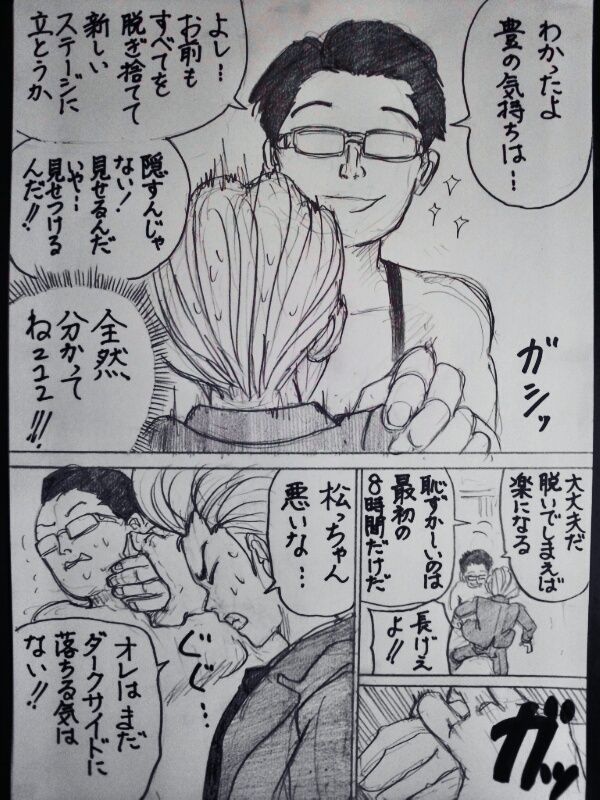 わかったよ
豊の気持ちは…
よし…
お前も
すべてを
脱ぎ捨てて
新しい
ステージに
立とうか
隠すんじゃ
ない!
見せるんだ
いや…
見せつける
んだ!!
ガシッ
全然
分かって
ねェェェ!!!
大丈夫だ
脱いでしまえば
楽になる
恥ずかしーいのは
最初の
8時間だけだ
長げぇ
よ!!
ガッ
松っちゃん
悪いな…
ぐぐ…
オレはまだ
ダークサイドに
落ちる気は
ない!!